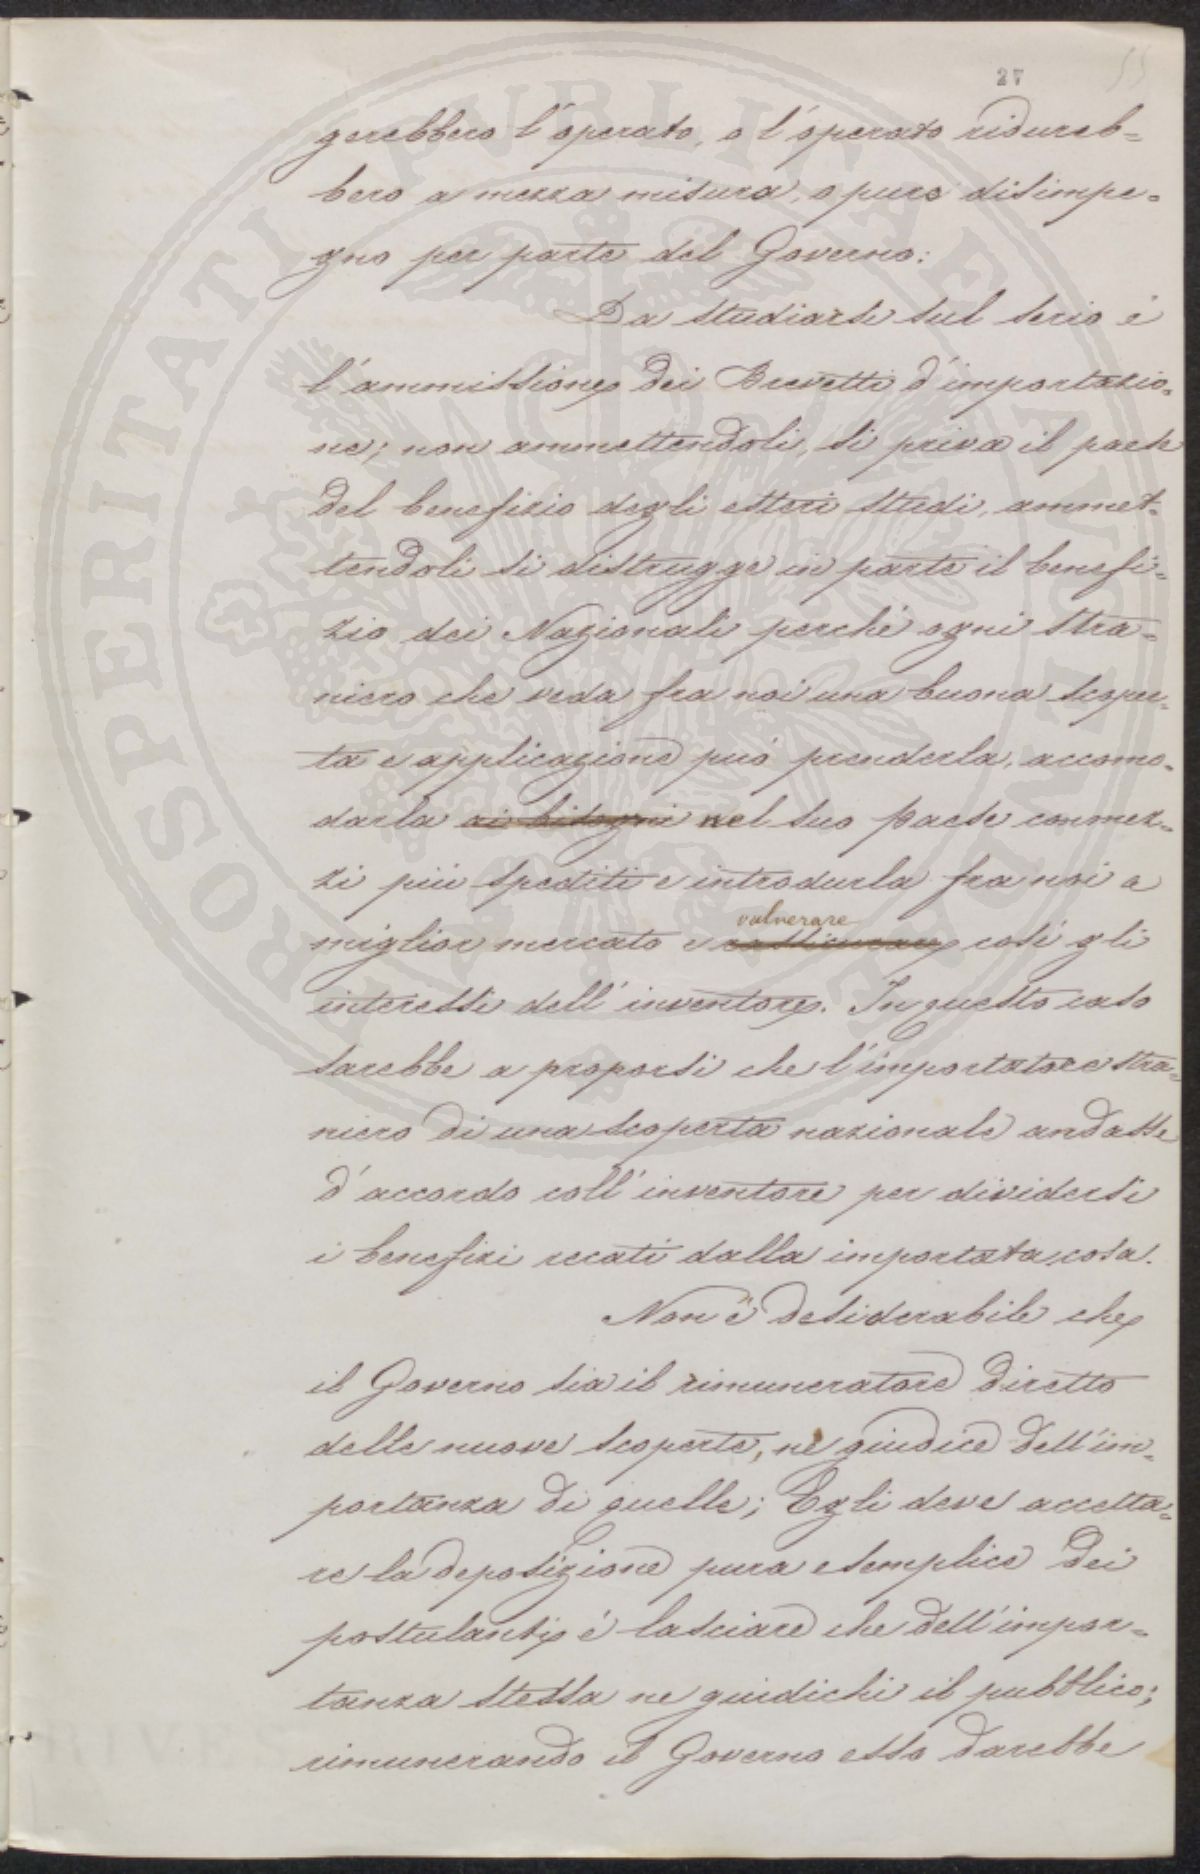 27
55
gerebbero l'operato, o l'operato ridureb=
bero a mezza misura, o pure disimpe=
gno per parte del Governo:
Da studiarsi sul serio è
l'ammissione dei Brevetti d'importazio=
ne; non ammettendoli, si priva il paese
del benefizio degli esteri studi, ammet=
tendoli si distrugge in parte il benefi=
zio dei Nazionali perchè ogni stra=
niero che veda fra noi una buona scoper=
ta e applicazione può prenderla, accomo=
darla ai bisogni nel suo paese con mez=
zi più spediti e introdurla fra noi a
vulnerare
miglior mercato e così gli
interessi dell'inventore. In questo caso
sarebbe a proporsi che l'importatore stra=
niero di una scoperta nazionale andasse
d'accordo coll'inventore per dividersi
i benefizi recati dalla importata cosa.
Non è desiderabile che
il Governo sia il rimuneratore diretto
delle nuove scoperte, nè giudice dell'im=
portanza di quelle; Egli deve accetta=
re la deposizione pura e semplice dei
postulanti è lasciare che dell'impor=
tanza stessa ne guidichi il pubblico;
rimunerando il Governo esso darebbe
PROSPERITATI PVBLICAE AVGENDAE